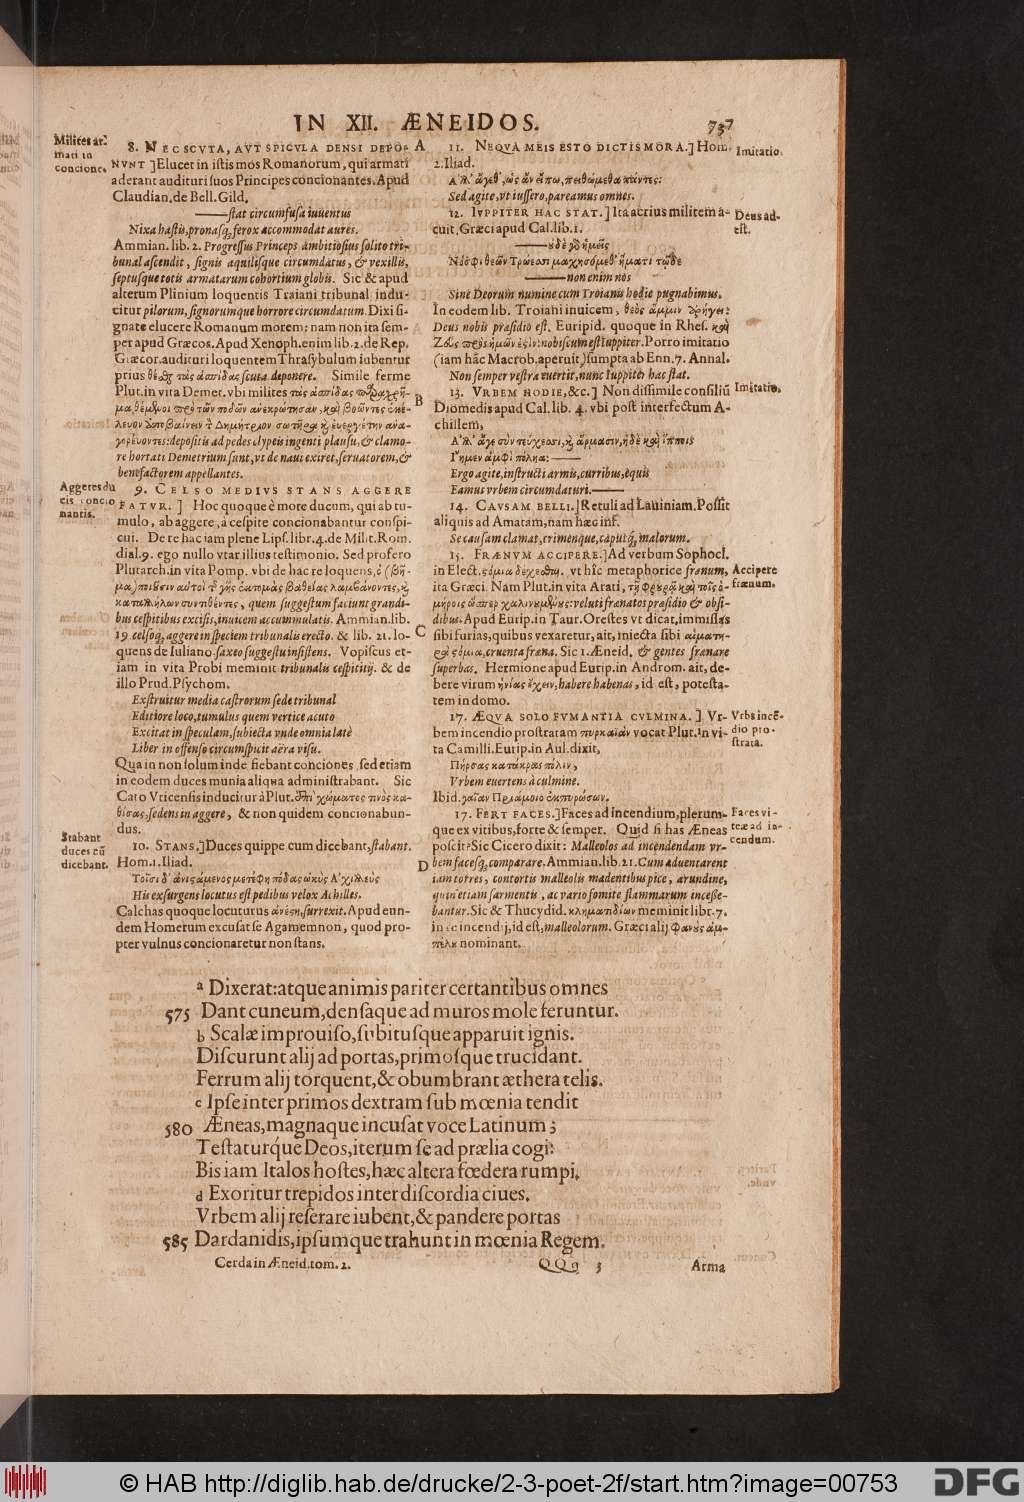 IN XII. ÆNEIDOS.
737
Milites ar-
mati in
concione.
8. NEC SCVTA, AVT SPICVLA DENSI DEPO-
NVNT ] Elucet in istis mos Romanorum, qui armati
aderant audituri suos Principes concionantes. Apud
Claudian. de Bell. Gild.
—— stat circumfusa iuuentus
Nixa hastis, pronasq; ferox accommodat aures.
Ammian. lib. 2. Progressus Princeps ambitiosius solito tri-
bunal ascendit, signis aquilisque circumdatus, & vexillis,
septusque totis armatarum cohortium globis. Sic & apud
alterum Plinium loquentis Traiani tribunal indu-
citur pilorum, signorumque horrore circumdatum. Dixi si-
gnate elucere Romanum morem; nam non ita sem-
per apud Græcos. Apud Xenoph. enim lib. 2. de Rep.
Græcor. audituri loquentem Thrasybulum iubentur
prius θέσθαι τὰς ἀσπίδας scuta deponere. Simile ferme
Plut. in vita Demet. vbi milites τὰς ἀσπίδας
βοῶντες ἐκέ-
λευον ἀποβαίνειν τ̃ Δημήτριον σωτῆρα καὶ ἐυεργέτην ἀνα-
γορέυοντες: depositis ad pedes clypeis ingenti plausu, & clamo-
re hortati Demetrium sunt, vt de naui exiret, seruatorem, &
benefactorem appellantes.
Aggeres du
cis concio
nantis.
9. CELSO MEDIVS STANS AGGERE
FATVR. ] Hoc quoque è more ducum, qui ab tu-
mulo, ab aggere, à cespite concionabantur conspi-
cui. De re hac iam plene Lips. libr. 4. de Milit. Rom.
dial. 9. ego nullo vtar illius testimonio. Sed profero
Plutarch. in vita Pomp. vbi de hac re loquens,
βαθείας λαμβάνοντες, καὶ
καταλλήλων συντιθέντες, quem suggestum faciunt grandi-
bus cespitibus excisis, inuicem accummulatis. Ammian. lib.
19 celsoq; aggere in speciem tribunalis erecto. & lib. 21. lo-
quens de Iuliano. saxeo suggestu insistens. Vopiscus et-
iam in vita Probi meminit tribunalis cespititij. & de
illo Prud. Psychom.
Exstruitur media castrorum sede tribunal
Editiore loco, tumulus quem vertice acuto
Excitat in speculam, subiecta vnde omnia latè
Liber in offenso circumspicit aëra visu.
Qua in non solum inde fiebant conciones, sed etiam
in eodem duces munia aliqua administrabant. Sic
Cato Vticensis inducitur à Plut. ἐπὶ χώματος τινὸς κα-
θίσας, sedens in aggere, & non quidem concionabun-
dus.
Stabant
duces cũ
dicebant.
10. STANS. ] Duces quippe cum dicebant, stabant.
Hom. 1. Iliad.
Τοῖσι δ' ἀνιςάμενος μετέφη πόδας ὠκὺς Ἀχιλλεύς
His exsurgens locutus est pedibus velox Achilles.
Calchas quoque locuturus ἀνέςη, surrexit. Apud eun-
dem Homerum excusat se Agamemnon, quod pro-
pter vulnus concionaretur non stans.
A
B
C
D
11. NEQVA MEIS ESTO DICTIS MORA. ] Hom.
2. Iliad.
Ἀλλ' ἄγεθ', ὡς ἂν εἴπω, πειθώμεθα πάντες:
Sed agite, vt iussero, pareamus omnes.
Imitatio.
12. IVPPITER HAC STAT. ] Ita acrius militem a-
cuit. Græci apud Cal. lib. 1.
Deus ad-
est.
—— ὐδὲ γὸ ἡμεῖς
Νόσφι θεῶν Τρώεσσι μαχησόμεθ' ἤματι τῷδε
—— non enim nos
Sine Deorum numine cum Troianis hodie pugnabimus.
In eodem lib. Troiani inuicem, θεὸς ἄμμιν
Deus nobis præsidio est. Euripid. quoque in Rhes. καὶ
Ζεὺς πρὸς ἡμῶν ἐςὶν: nobiscum est Iuppiter. Porro imitatio
(iam hâc Macrob. aperuit) sumpta ab Enn. 7. Annal.
Non semper vestra euertit, nunc Iuppiter hac stat.
13. VRBEM HODIE, &c. ] Non dissimile consiliũ
Diomedis apud Cal. lib. 4. vbi post interfectum A-
chillem,
Imitatio.
Ἀλλ' ἄγε σὺν τεύχεσσι, καὶ ἅρμασιν, ἠδὲ καὶ ἵπποις
Ἴομεν ἀμφὶ πόληα: ——
Ergo agite, instructi armis, curribus, equis
Eamus vrbem circumdaturi. ——
14. CAVSAM BELLI. ] Retuli ad Lauiniam. Possit
aliquis ad Amatam, nam hæc inf.
Se causam clamat, crimenque, caputq; malorum.
15. FRÆNVM ACCIPERE. ] Ad verbum Sophocl.
in Elect. ςόμια δέχεσθαι. vt hîc metaphorice frænum,
ita Græci. Nam Plut. in vita Arati, τῇ φρουρᾷ καὶ τοῖς ὁ-
μήροις ὥσπερ χαλινουμένους: veluti frænatos præsidio & obsi-
dibus. Apud Eurip. in Taur. Orestes vt dicat, immissas
sibi furias, quibus vexaretur, ait, iniecta sibi αἱματη-
ρὰ ςόμια, cruenta fræna. Sic 1. Æneid. & gentes frænare
superbas. Hermione apud Eurip. in Androm. ait, de-
bere virum ἡνίας ἔχειν, habere habenas, id est, potesta-
tem in domo.
Accipere
frænum.
17. ÆQVA SOLO FVMANTIA CVLMINA. ] Vr-
bem incendio prostratam πυρκαϊὰν vocat Plut. in vi-
ta Camilli. Eurip. in Aul. dixit,
Πέρσας κατάκρας πόλιν,
Vrbem euertens à culmine.
Ibid. γαῖαν Πριάμοιο ἐκπυρώσων.
Vrbs incẽ-
dio pro-
strata.
17. FERT FACES. ] Faces ad incendium, plerum-
que ex vitibus, forte & semper. Quid si has Æneas
poscit? Sic Cicero dixit: Malleolos ad incendendam vr-
bem facesq; comparare. Ammian. lib. 21. Cum aduentarent
iam torres, contortis malleolis madentibus pice, arundine,
quin etiam sarmentis, ac vario fomite flammarum incesse-
bantur. Sic & Thucydid. κληματιδίων meminit libr. 7.
in re incendij, id est, malleolorum. Græci alij φανοὺς ἀμ-
πέλου nominant.
Faces vi-
teæ ad in-
cendium.
a Dixerat: atque animis pariter certantibus omnes
575 Dant cuneum, densaque ad muros mole feruntur.
b Scalæ improuiso, subitusque apparuit ignis.
Discurrunt alij ad portas, primosque trucidant.
Ferrum alij torquent, & obumbrant æthera telis.
c Ipse inter primos dextram sub mœnia tendit
580 Æneas, magnaque incusat voce Latinum;
Testaturq́ue Deos, iterum se ad prælia cogi:
Bis iam Italos hostes, hæc altera fœdera rumpi.
d Exoritur trepidos inter discordia ciues.
Vrbem alij reserare iubent, & pandere portas
585 Dardanidis, ipsumque trahunt in mœnia Regem.
Cerda in Æneid. tom. 2.
QQq 3
Arma
© HAB http://diglib.hab.de/drucke/2-3-poet-2f/start.htm?image=00753
DFG